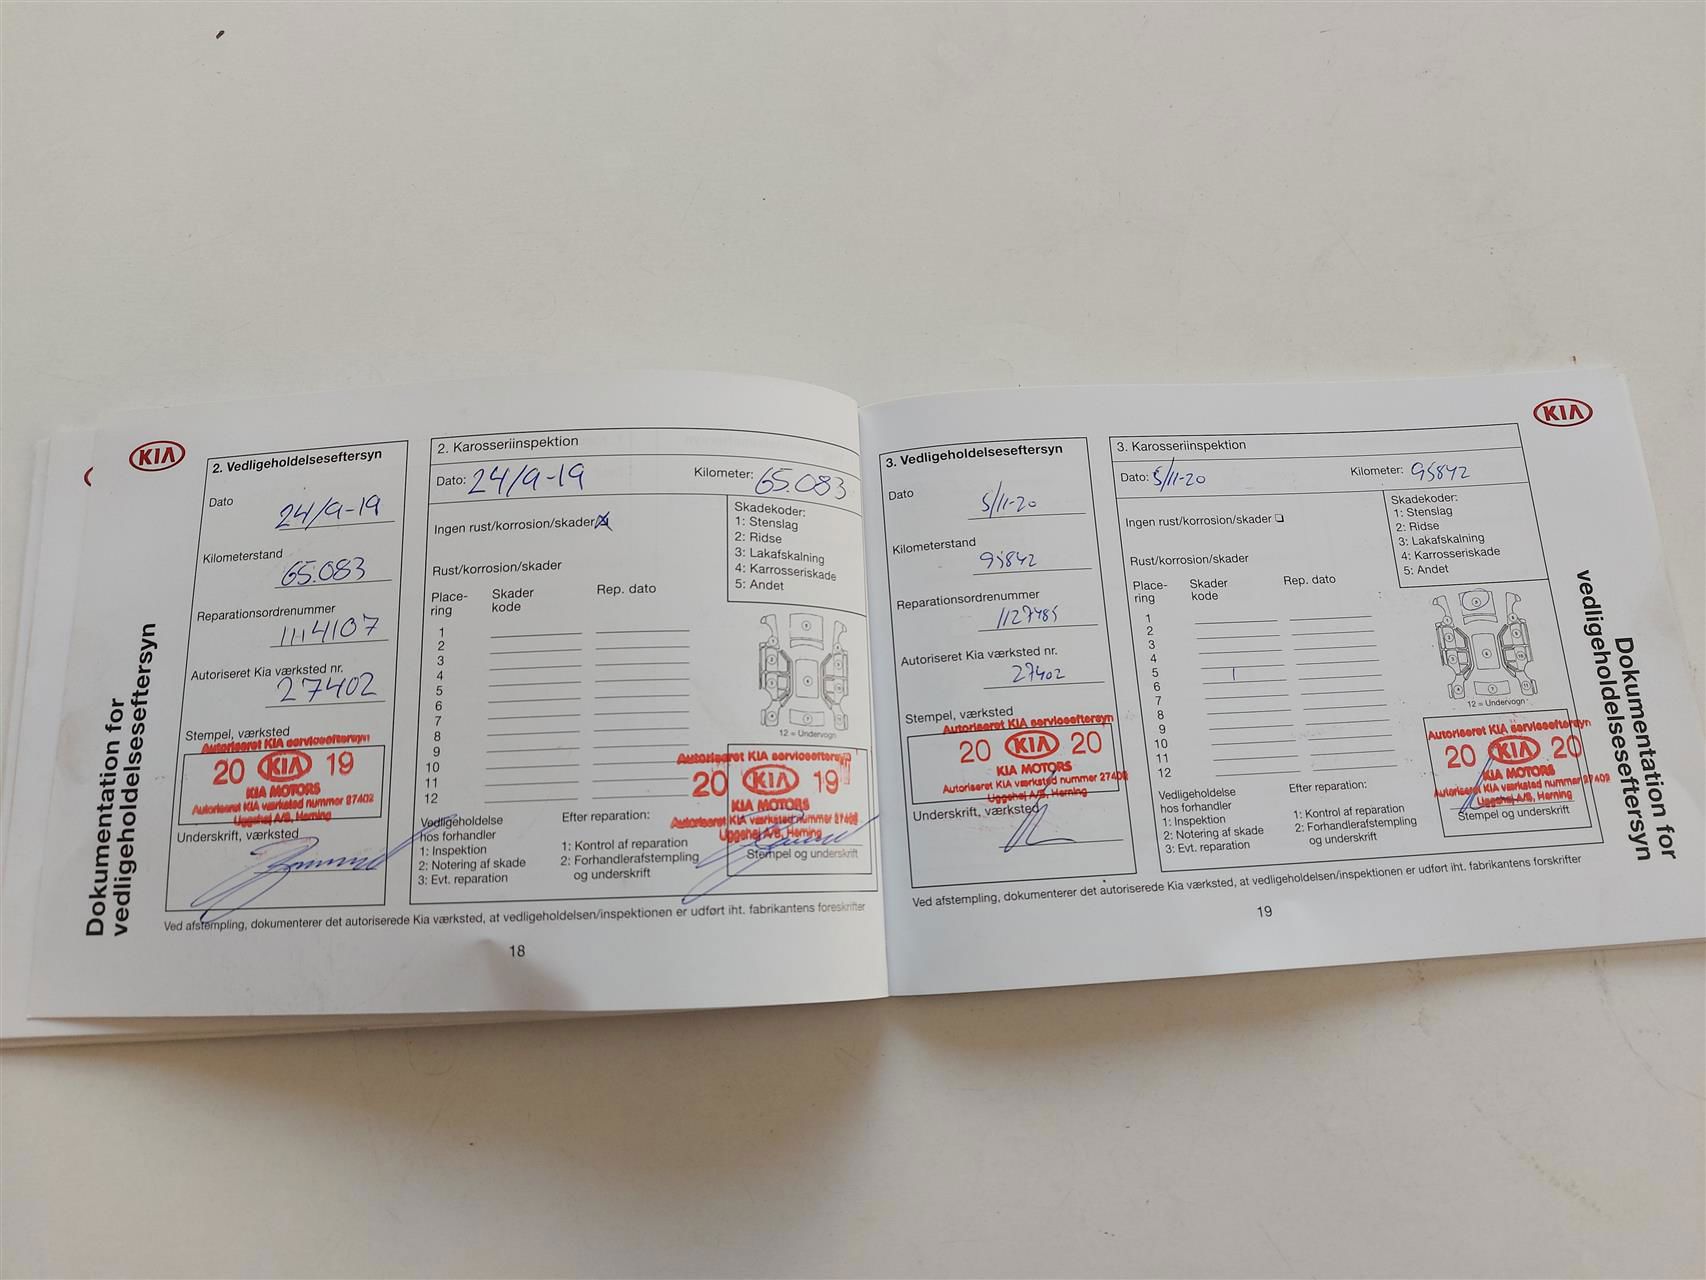 KIA
Dokumentation for
vedligeholdelseseftersyn
2. Vedligeholdelseseftersyn
Dato
24/9-19
Kilometerstand
65.083
Reparationsordrenummer
1114107
Autoriseret Kia værksted nr.
27402
Stempel, værksted
Autoriseret KIA serviceeftersyn
20 KIA 19
KIA MOTORS
Autoriseret KIA værksted nummer 27402
Uggehøj A/S, Herning
Underskrift, værksted
2. Karosseriinspektion
Dato: 24/9-19 Kilometer: 65.083
Ingen rust/korrosion/skader
Skadekoder:
1: Stenslag
2: Ridse
3: Lakafskalning
4: Karrosseriskade
5: Andet
Rust/korrosion/skader
Place-
ring
Skader
kode
Rep. dato
1
2
3
4
5
6
7
8
9
10
11
12
12 = Undervogn
Vedligeholdelse
hos forhandler
1: Inspektion
2: Notering af skade
3: Evt. reparation
Efter reparation:
1: Kontrol af reparation
2: Forhandlerafstempling
og underskrift
Autoriseret KIA serviceeftersyn
20 KIA 19
KIA MOTORS
Autoriseret KIA værksted nummer 27402
Uggehøj A/S, Herning
Stempel og underskrift
Ved afstempling, dokumenterer det autoriserede Kia værksted, at vedligeholdelsen/inspektionen er udført iht. fabrikantens foreskrifter
18
3. Vedligeholdelseseftersyn
Dato
5/11-20
Kilometerstand
95842
Reparationsordrenummer
1127485
Autoriseret Kia værksted nr.
27402
Stempel, værksted
Autoriseret KIA serviceeftersyn
20 KIA 20
KIA MOTORS
Autoriseret KIA værksted nummer 27402
Uggehøj A/S, Herning
Underskrift, værksted
3. Karosseriinspektion
Dato: 5/11-20 Kilometer: 95842
Ingen rust/korrosion/skader
Skadekoder:
1: Stenslag
2: Ridse
3: Lakafskalning
4: Karrosseriskade
5: Andet
Rust/korrosion/skader
Place-
ring
Skader
kode
Rep. dato
1
2
3
4
5 1
6
7
8
9
10
11
12
12 = Undervogn
Vedligeholdelse
hos forhandler
1: Inspektion
2: Notering af skade
3: Evt. reparation
Efter reparation:
1: Kontrol af reparation
2: Forhandlerafstempling
og underskrift
Autoriseret KIA serviceeftersyn
20 KIA 20
KIA MOTORS
Autoriseret KIA værksted nummer 27402
Uggehøj A/S, Herning
Stempel og underskrift
Ved afstempling, dokumenterer det autoriserede Kia værksted, at vedligeholdelsen/inspektionen er udført iht. fabrikantens forskrifter
19
KIA
Dokumentation for
vedligeholdelseseftersyn